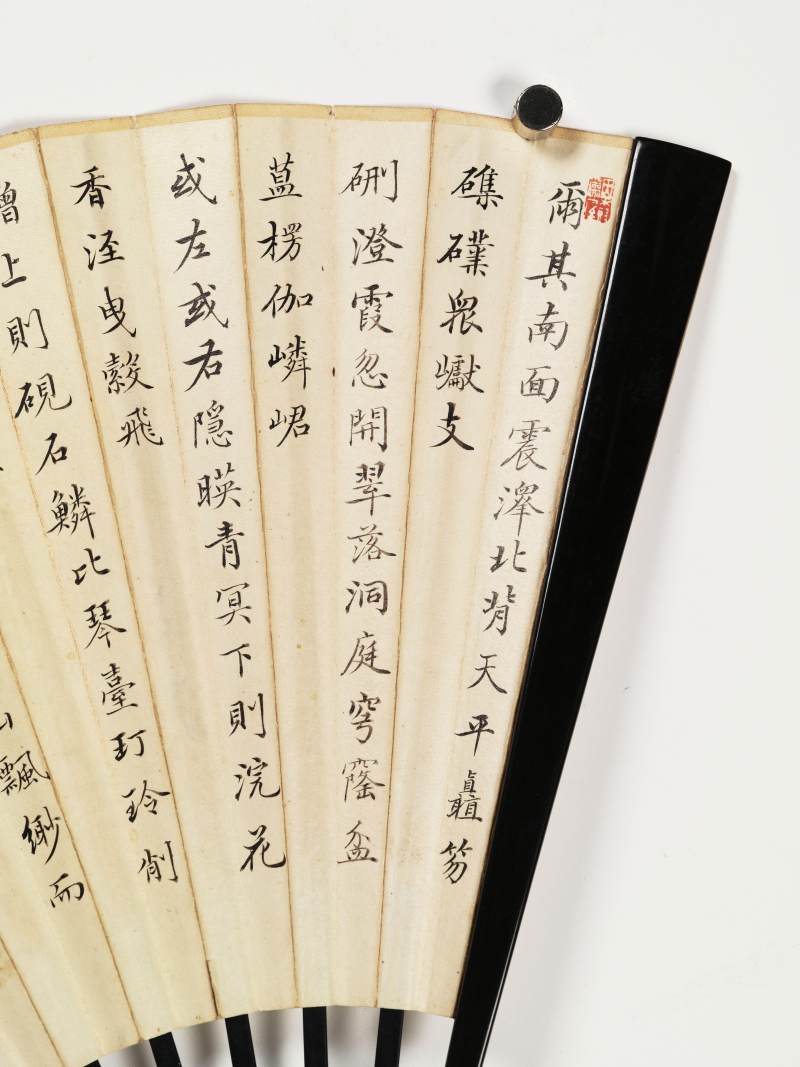 爾其南面震澤北背天平矗笏
磼礏眾巘支
硎澄霞忽開翠落洞庭穹窿
楞伽嶙峮
或左或右隱暎青冥下則浣花
香涇曳縠飛
上則硯石鱗比琴臺玎玲削
飄緲而